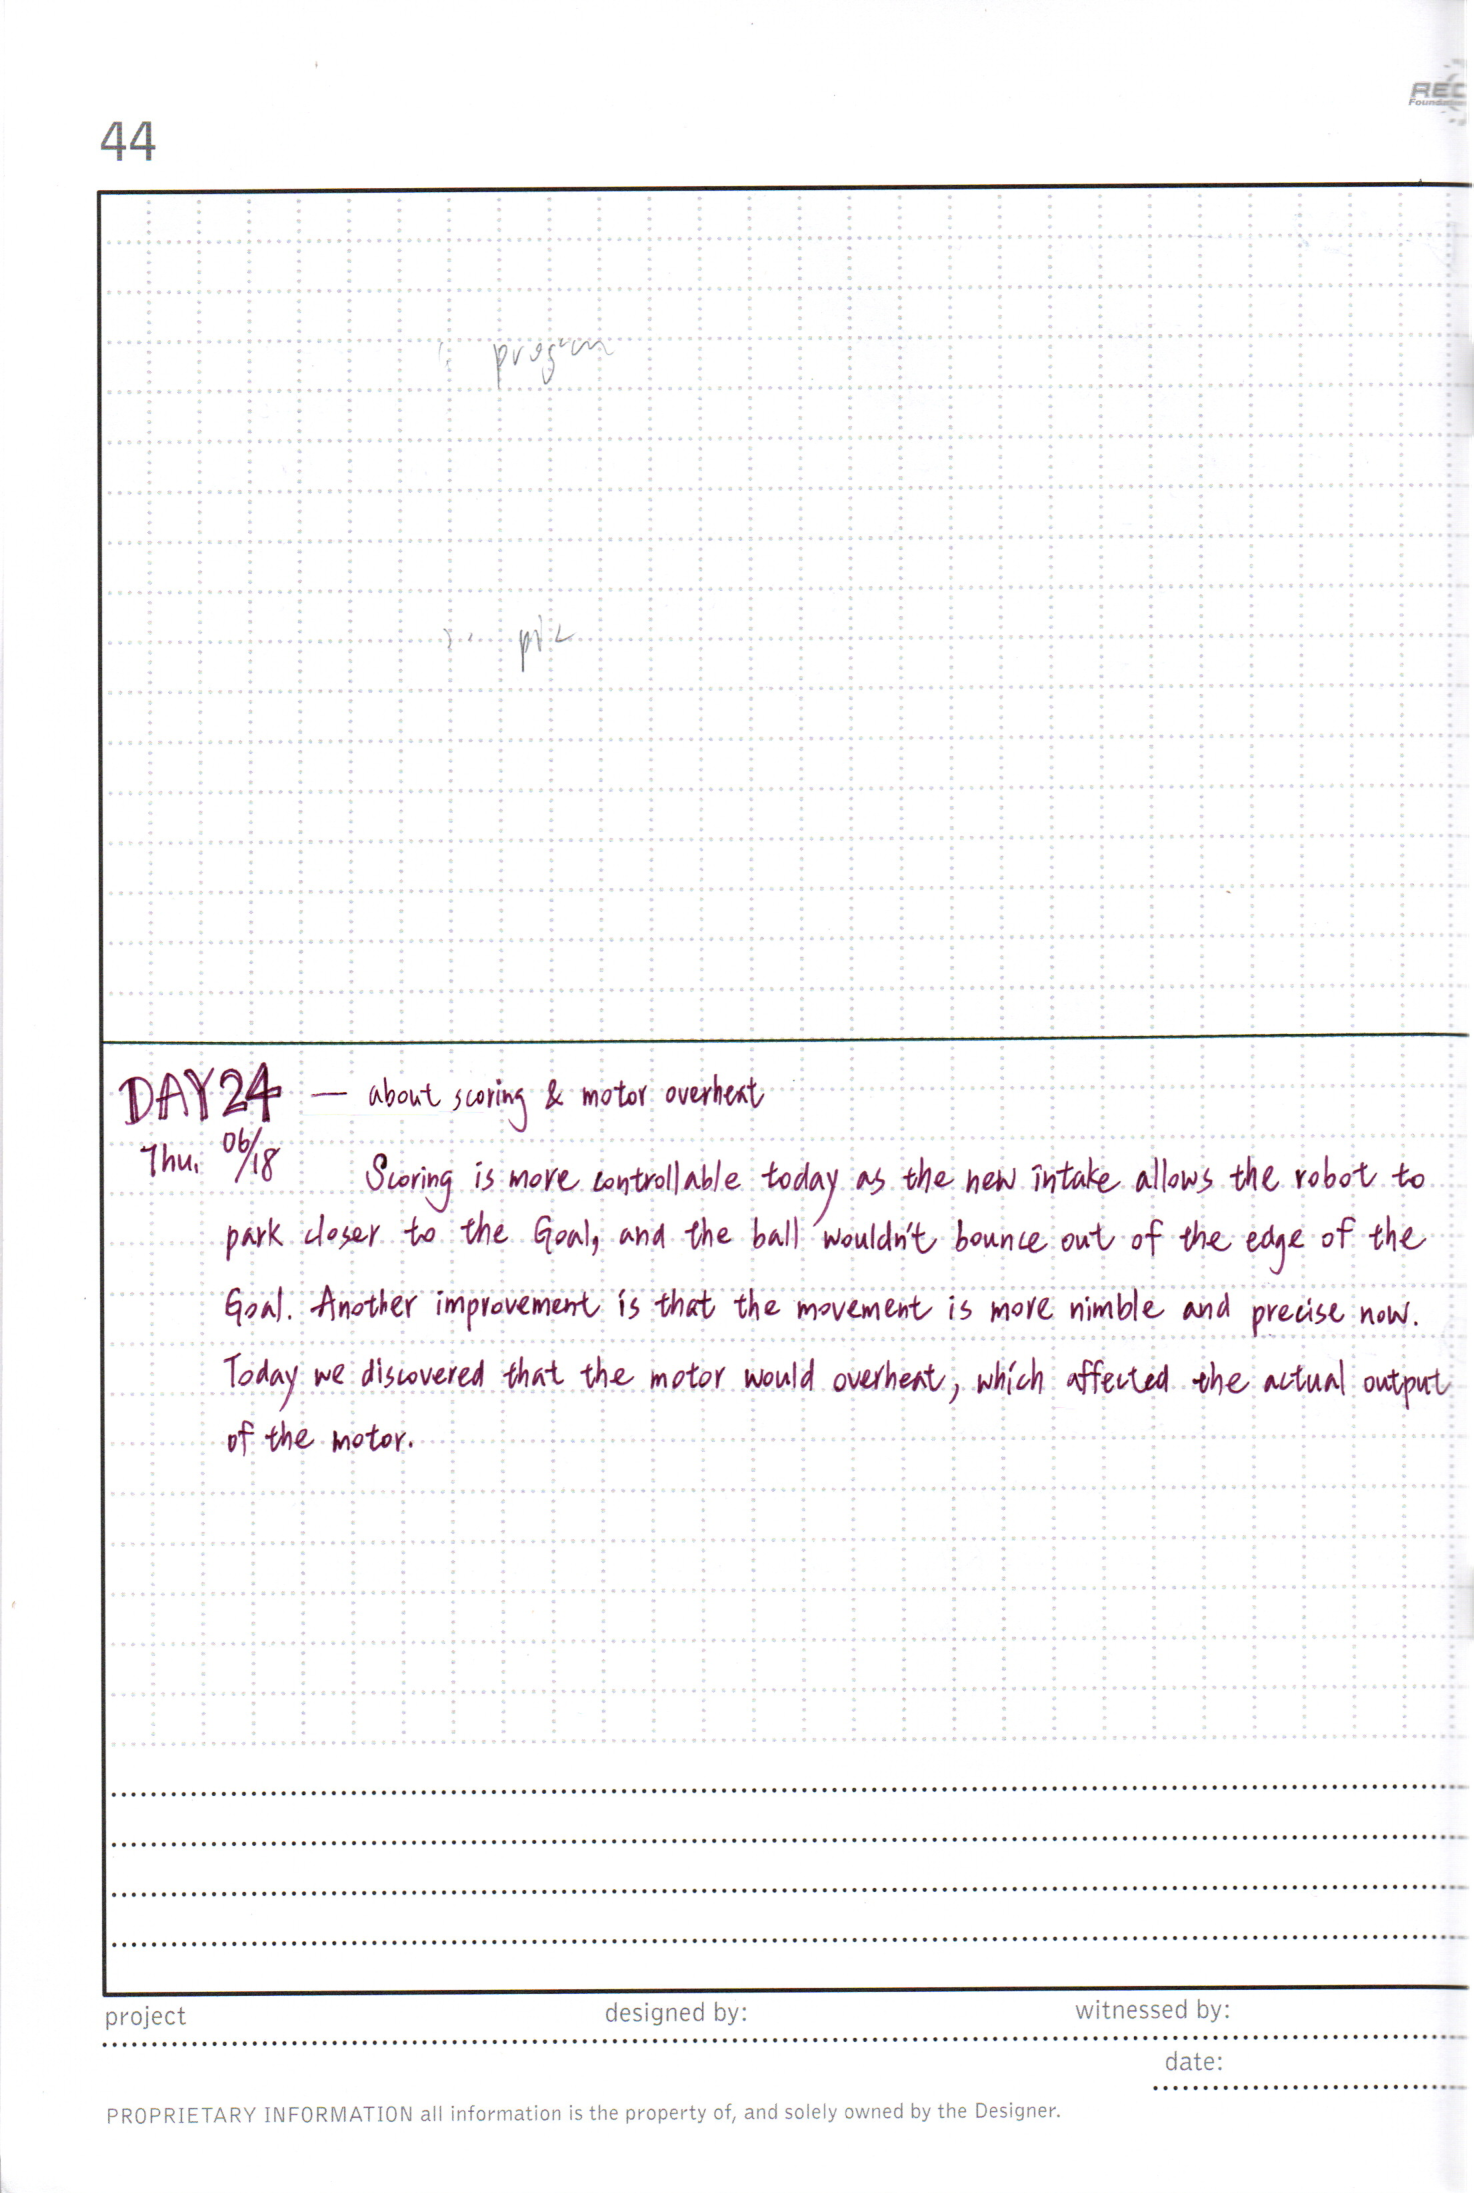 REC
Foundation
44
program
pic
DAY 24 — about scoring & motor overheat
Thu. 06/18
Scoring is more controllable today as the new intake allows the robot to
park closer to the Goal, and the ball wouldn't bounce out of the edge of the
Goal. Another improvement is that the movement is more nimble and precise now.
Today we discovered that the motor would overheat, which affected the actual output
of the motor.
project designed by: witnessed by:
date:
PROPRIETARY INFORMATION all information is the property of, and solely owned by the Designer.